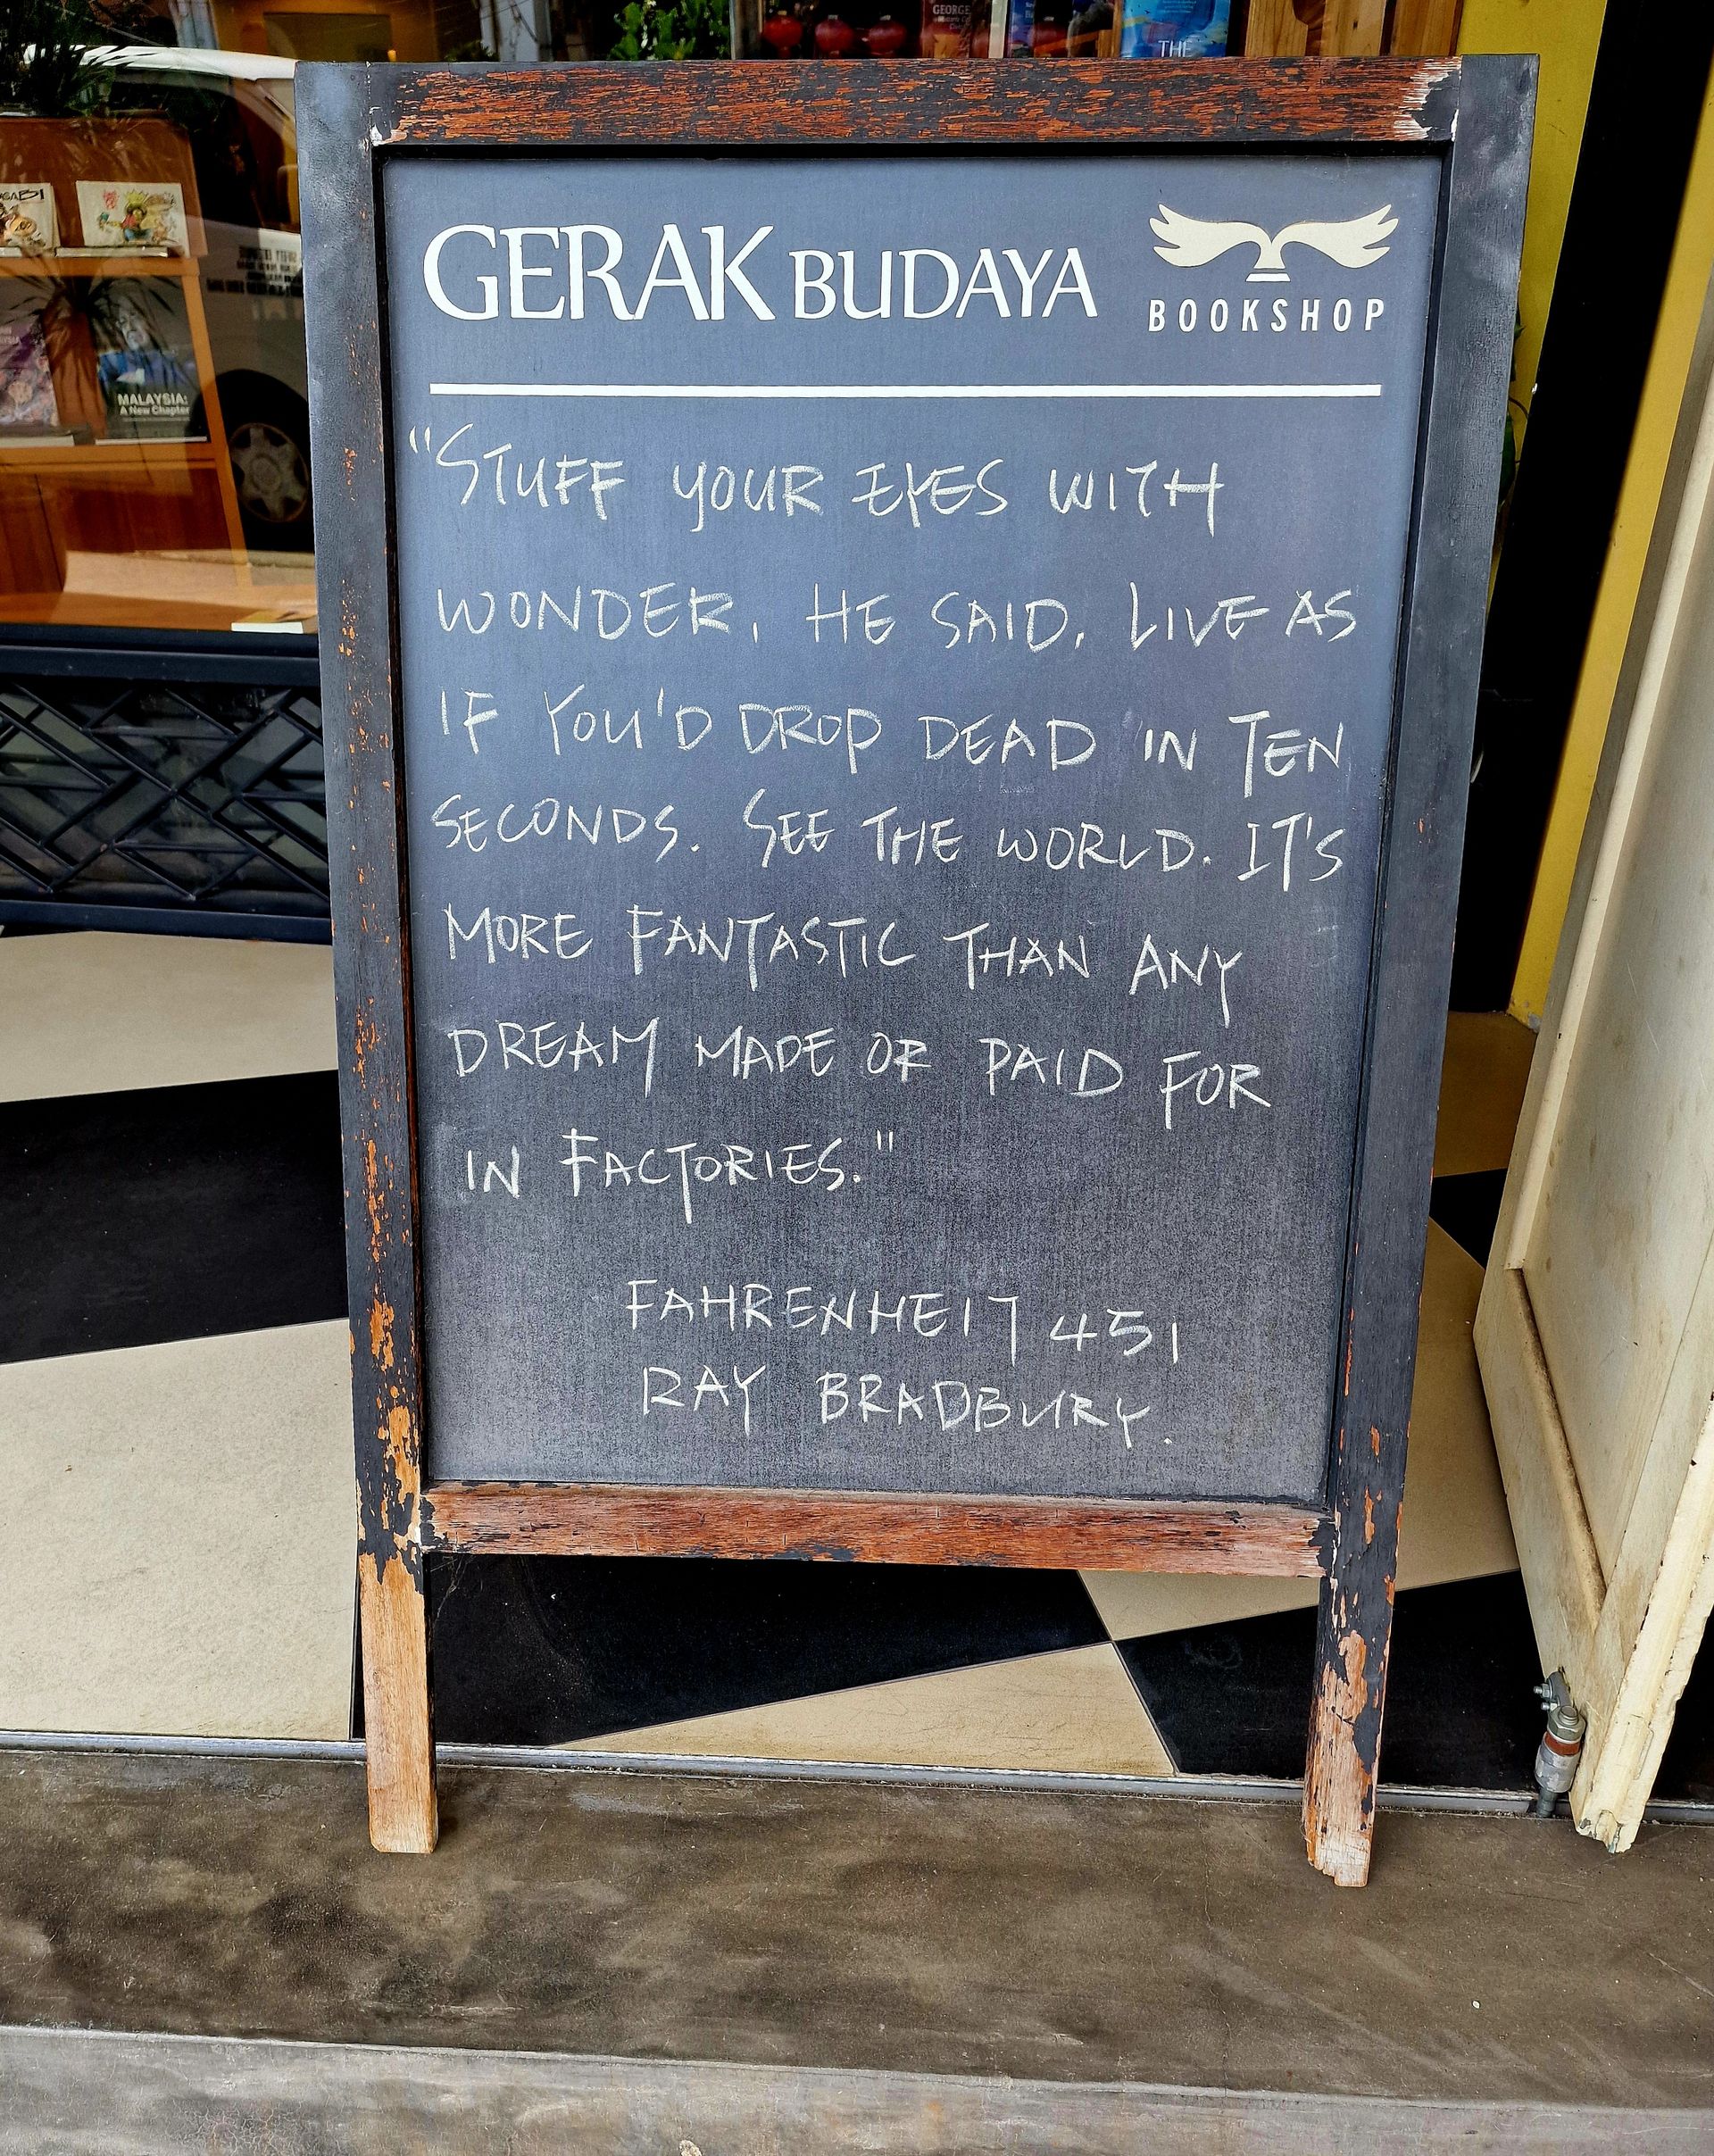 GEORGE
THE
GERAK BUDAYA
BOOKSHOP
MALAYSIA:
A New Chapter
"STUFF YOUR EYES WITH
WONDER, HE SAID, LIVE AS
IF YOU'D DROP DEAD IN TEN
SECONDS. SEE THE WORLD. IT'S
MORE FANTASTIC THAN ANY
DREAM MADE OR PAID FOR
IN FACTORIES."
FAHRENHEIT 451
RAY BRADBURY.